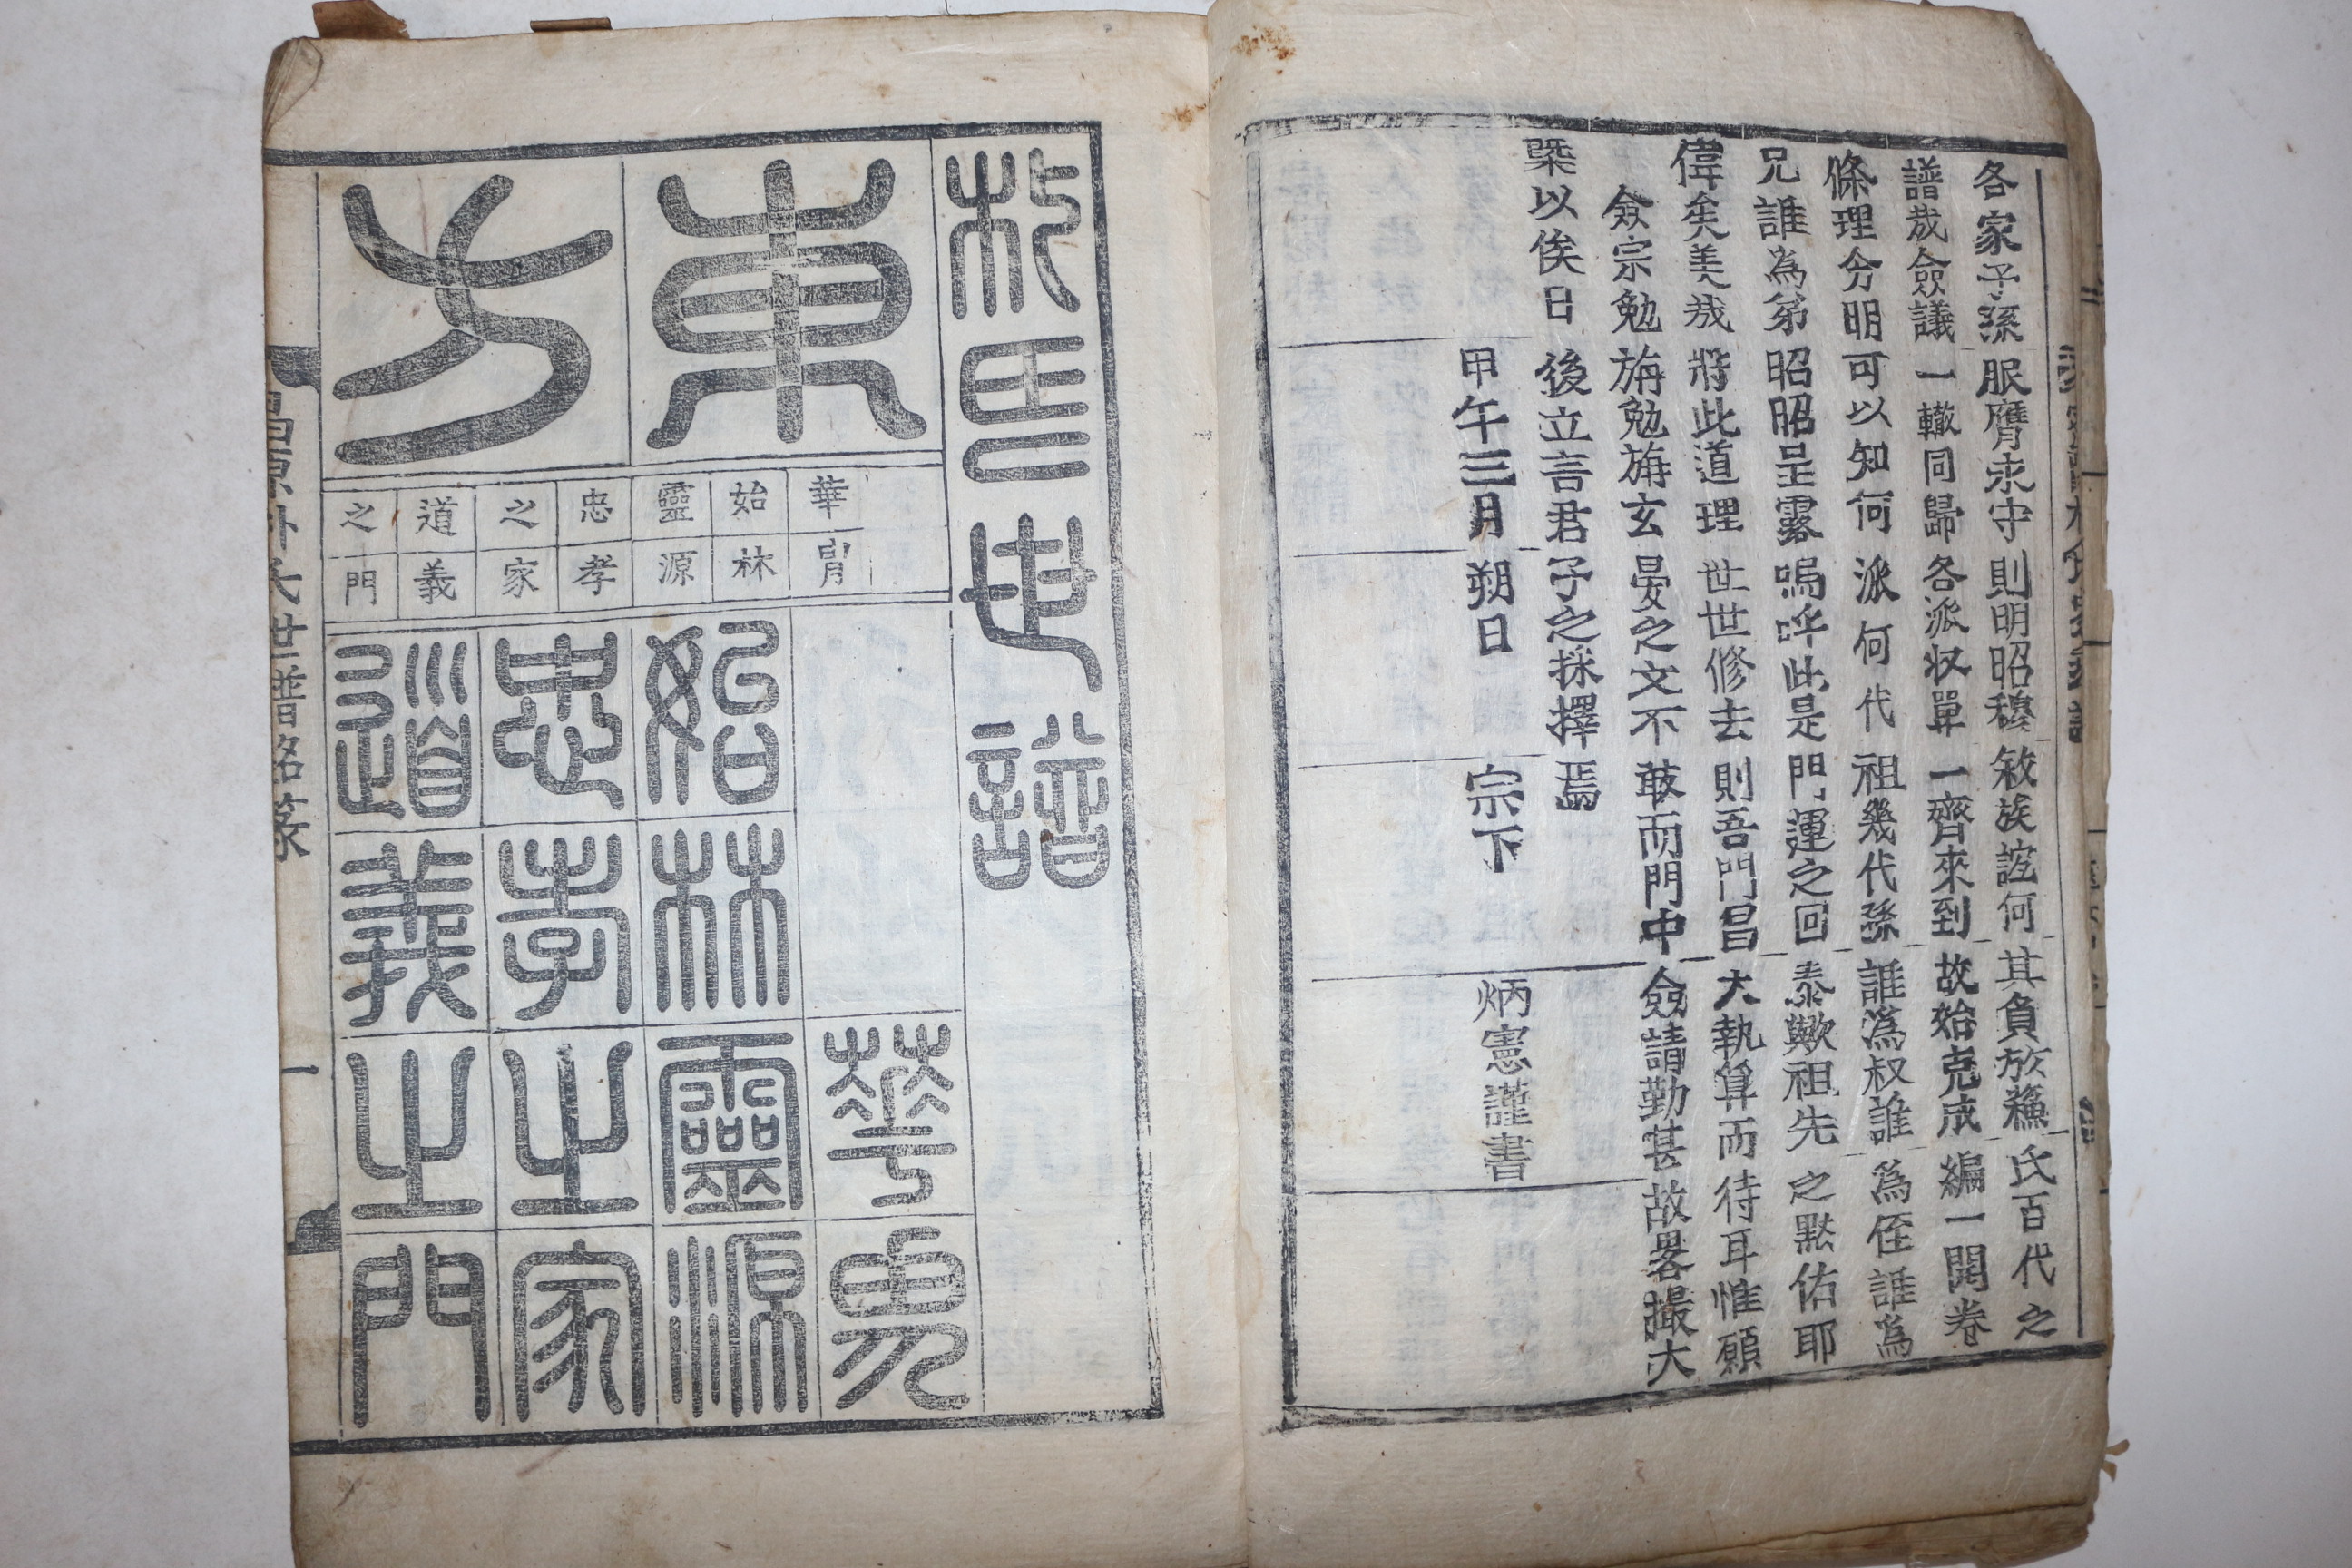 各家子孫服膺永守則明昭穆敘族誼何其負於蘇氏百代之
譜哉僉議一轍同歸各派收單一齊來到故始克成編一開卷
條理分明可以知何派何代祖幾代孫誰爲叔誰爲侄誰爲
兄誰為弟昭昭呈露嗚呼此是門運之回泰歟祖先之默佑耶
偉矣美哉將此道理世世修去則吾門昌大執算而待耳惟願
僉宗勉旃勉旃玄晏之文不敢而門中僉請勤甚故畧撮大
槩以俟日後立言君子之採擇焉
甲午三月朔日 宗下 炳憲謹書
朴氏世譜
東方
華冑
始林
靈源
忠孝
之家
道義
之門
華冑
始林靈源
忠孝之家
道義之門
朴氏世譜銘篆
一